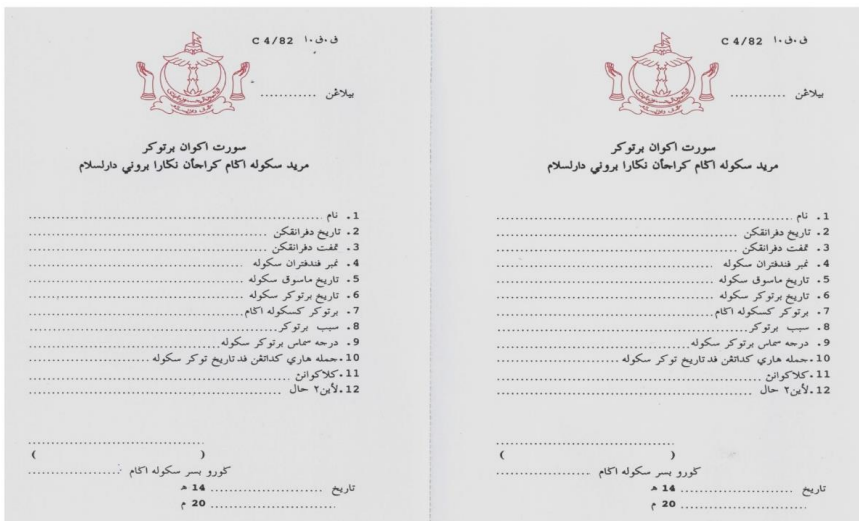 ق.ق.١ C 4/82
بيلاڠن ............
سورت اكوان برتوكر
مريد سكوله اݢام كراجأن نݢارا بروني دارلسلام
1. نام ............
2. تاريخ دفرانقكن ............
3. تمفت دفرانقكن ............
4. نمبر فندفتران سكوله ............
5. تاريخ ماسوق سكوله ............
6. تاريخ برتوكر سكوله ............
7. برتوكر كسكوله اݢام ............
8. سبب برتوكر ............
9. درجه سماس برتوكر سكوله ............
10. جمله هاري كداتڠن فد تاريخ توكر سكوله ............
11. كلاكوانڽ ............
12. لأين٢ حال ............
............
(                    )
ݢورو بسر سكوله اݢام ............
تاريخ ............ 14 هـ
............ 20 م
ق.ق.١ C 4/82
بيلاڠن ............
سورت اكوان برتوكر
مريد سكوله اݢام كراجأن نݢارا بروني دارلسلام
1. نام ............
2. تاريخ دفرانقكن ............
3. تمفت دفرانقكن ............
4. نمبر فندفتران سكوله ............
5. تاريخ ماسوق سكوله ............
6. تاريخ برتوكر سكوله ............
7. برتوكر كسكوله اݢام ............
8. سبب برتوكر ............
9. درجه سماس برتوكر سكوله ............
10. جمله هاري كداتڠن فد تاريخ توكر سكوله ............
11. كلاكوانڽ ............
12. لأين٢ حال ............
............
(                    )
ݢورو بسر سكوله اݢام ............
تاريخ ............ 14 هـ
............ 20 م